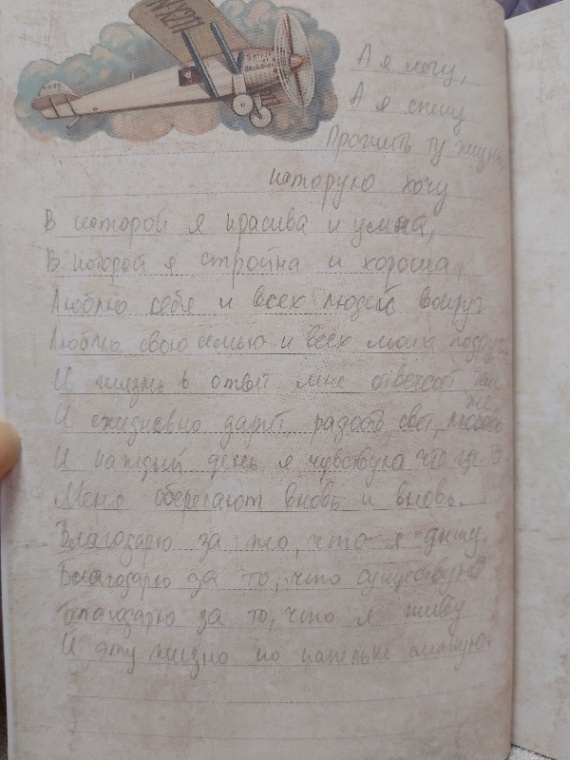 NX211
Spirit
St. Louis
А я лечу,
А я спешу
Прожить ту жизнь
которую хочу
В которой я красива и умна,
В которой я стройна и хороша,
Люблю себя и всех людей вокруг
Люблю свою семью и всех моих подруг
И жизнь в ответ мне отвечает тем
же
И ежедневно дарит радость, свет, любовь
И каждый день я чувствую что где-то
Меня оберегают вновь и вновь.
Благодарю за то, что я дышу,
Благодарю за то, что существую
Благодарю за то, что я живу
И эту жизнь по капельке смакую.